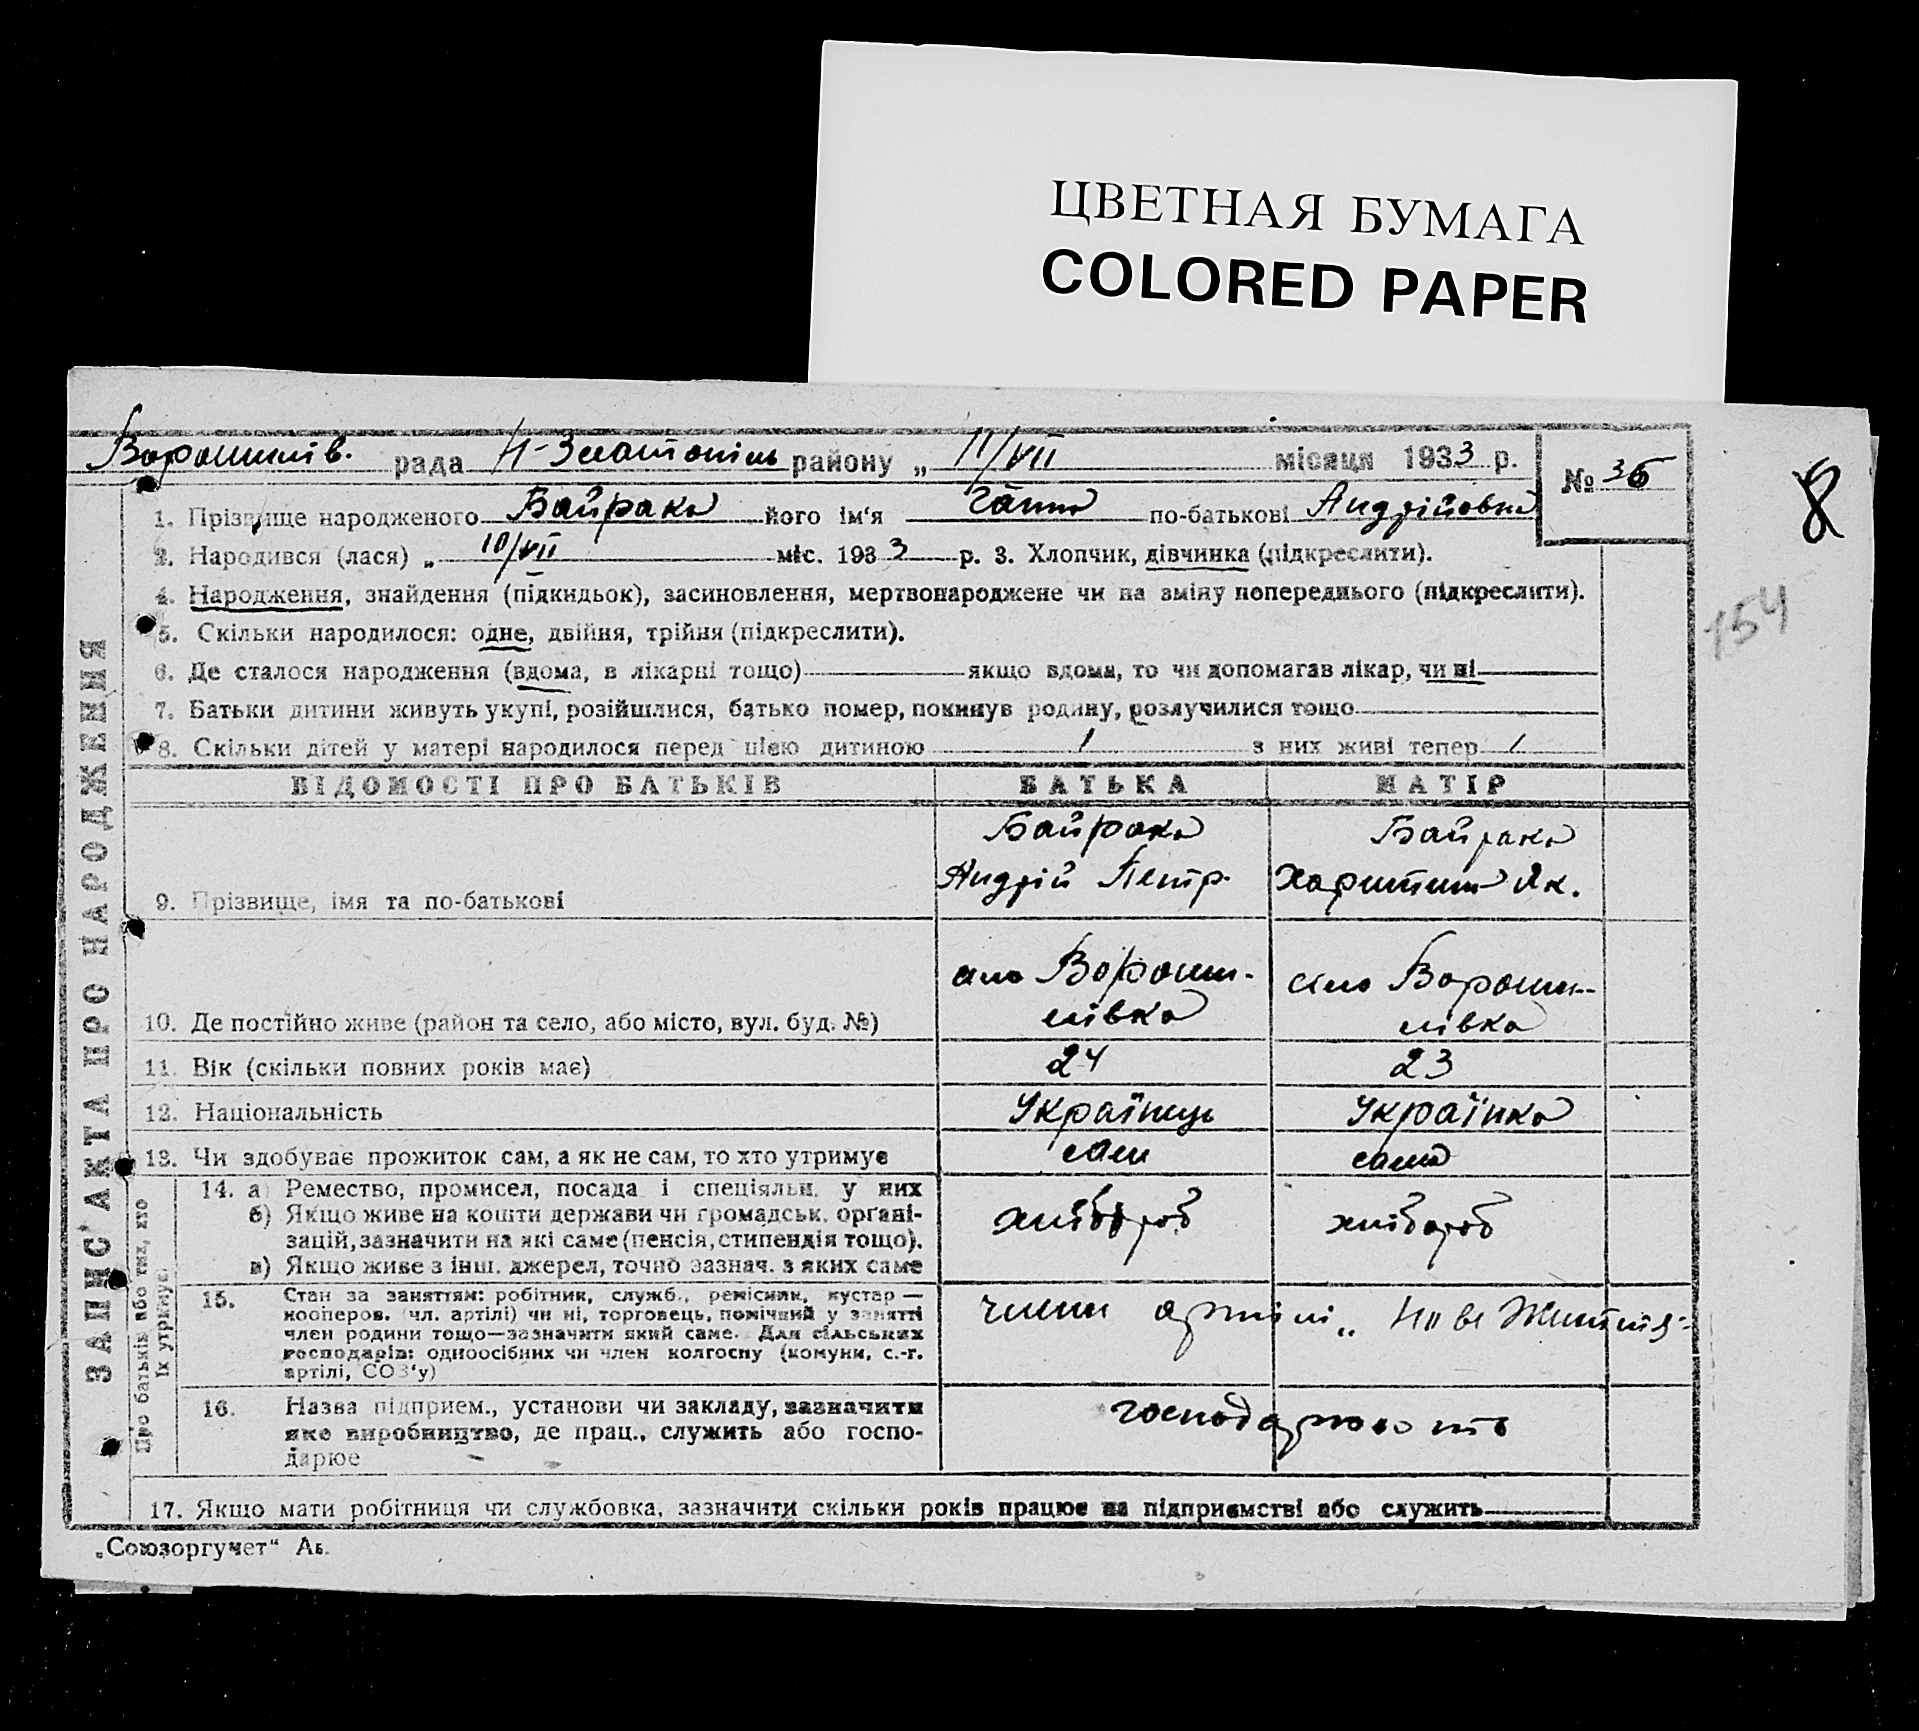 ЦВЕТНАЯ БУМАГА
COLORED PAPER
Ворошилів. рада Н-Златопіль району „ 11/VII місяця 1933 р.
№ 36
8
1. Прізвище народженого Байрака його ім‘я Ганна по-батькові Андрійовна
2. Народився (лася) „ 10/VII міс. 1933 р. 3. Хлопчик, дівчинка (підкреслити).
4. Народження, знайдення (підкидьок), засиновлення, мертвонароджене чи на зміну попереднього (підкреслити).
154
5. Скільки народилося: одне, двійня, трійня (підкреслити).
6. Де сталося народження (вдома, в лікарні тощо) якщо вдома, то чи допомагав лікар, чи ні
7. Батьки дитини живуть укупі, розійшлися, батько помер, покинув родину, розлучилися тощо
8. Скільки дітей у матері народилося перед цією дитиною 1 з них живі тепер 1
ЗАПИС АКТА ПРО НАРОДЖЕННЯ
ВІДОМОСТІ ПРО БАТЬКІВ БАТЬКА МАТІР
Байрака Байрака
Андрій Петр. Харитина Як.
9. Прізвище, імя та по-батькові
село Вороши- село Вороши-
лівка лівка
10. Де постійно живе (район та село, або місто, вул. буд. №)
11. Вік (скільки повних років має) 24 23
12. Національність Українець Українка
13. Чи здобуває прожиток сам, а як не сам, то хто утримує сам сама
Про батьків або тих, хто
їх утримує
14. а) Ремество, промисел, посада і спеціяльн. у них
б) Якщо живе на кошти держави чи громадськ. органі-
зацій, зазначити на які саме (пенсія, стипендія тощо).
в) Якщо живе з інш. джерел, точно зазнач. з яких саме
хлібороб хлібороб
15. Стан за заняттям: робітник, служб., ремісник, кустар —
кооперов. (чл. артілі) чи ні, торговець, помічний у занятті
член родини тощо—зазначити який саме. Для сільських
господарів: одноосібних чи член колгоспу (комуни, с.-г.
артілі, СОЗ‘у)
члени артілі „Нове Життя"
16. Назва підприєм., установи чи закладу, зазначити
яке виробництво, де прац., служить або госпо-
дарює
господарюють
17. Якщо мати робітниця чи службовка, зазначити скільки років працює на підприємстві або служить
„Союзоргучет“ Аь.